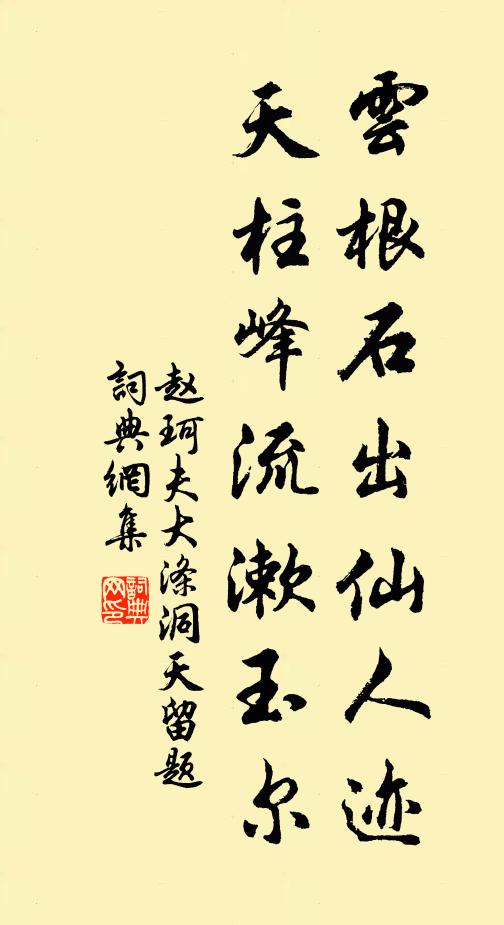 雲根石出仙人迹
天柱峰流漱玉尔
赵珂夫大涤洞天留题
詞典網集
詞典网印